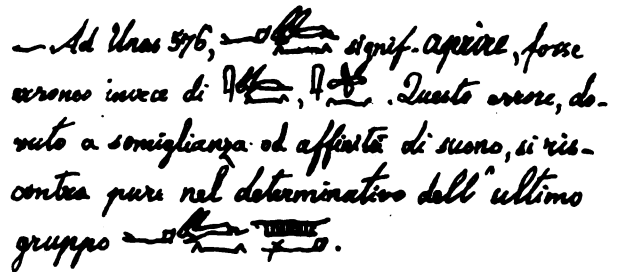 — Ad Unas 576, signif. aprire, forse
erroneo invece di , . Questo errore, do-
vuto a somiglianza od affinità di suono, si ris-
contra pure nel determinativo dell' ultimo
gruppo .